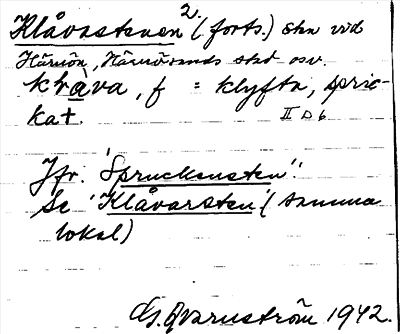 Klåvastenen 2. (forts.) Sten vid
Härnön, Härnösands stad osv.
klåva, f = klyfta, spric-
ka t. II D 6
Jfr. 'Spruckensten'.
Se 'Klåvarsten' (samma
lokal)
G. Qvarnström 1942.